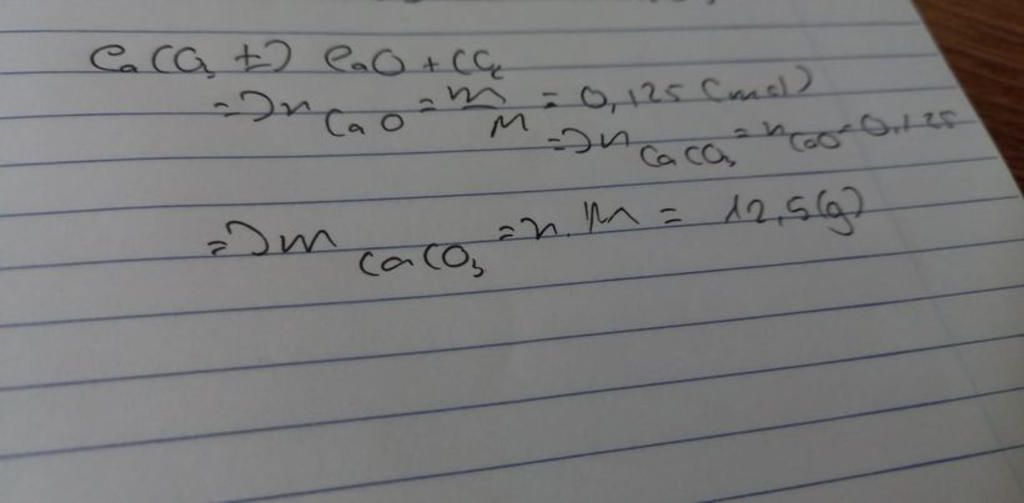 CaCO₃ t→ CaO + CO₂
=> n CaO = m/M = 0,125 (mol)
=> n CaCO₃ = n CaO = 0,125
=> m CaCO₃ = n.M = 12,5(g)